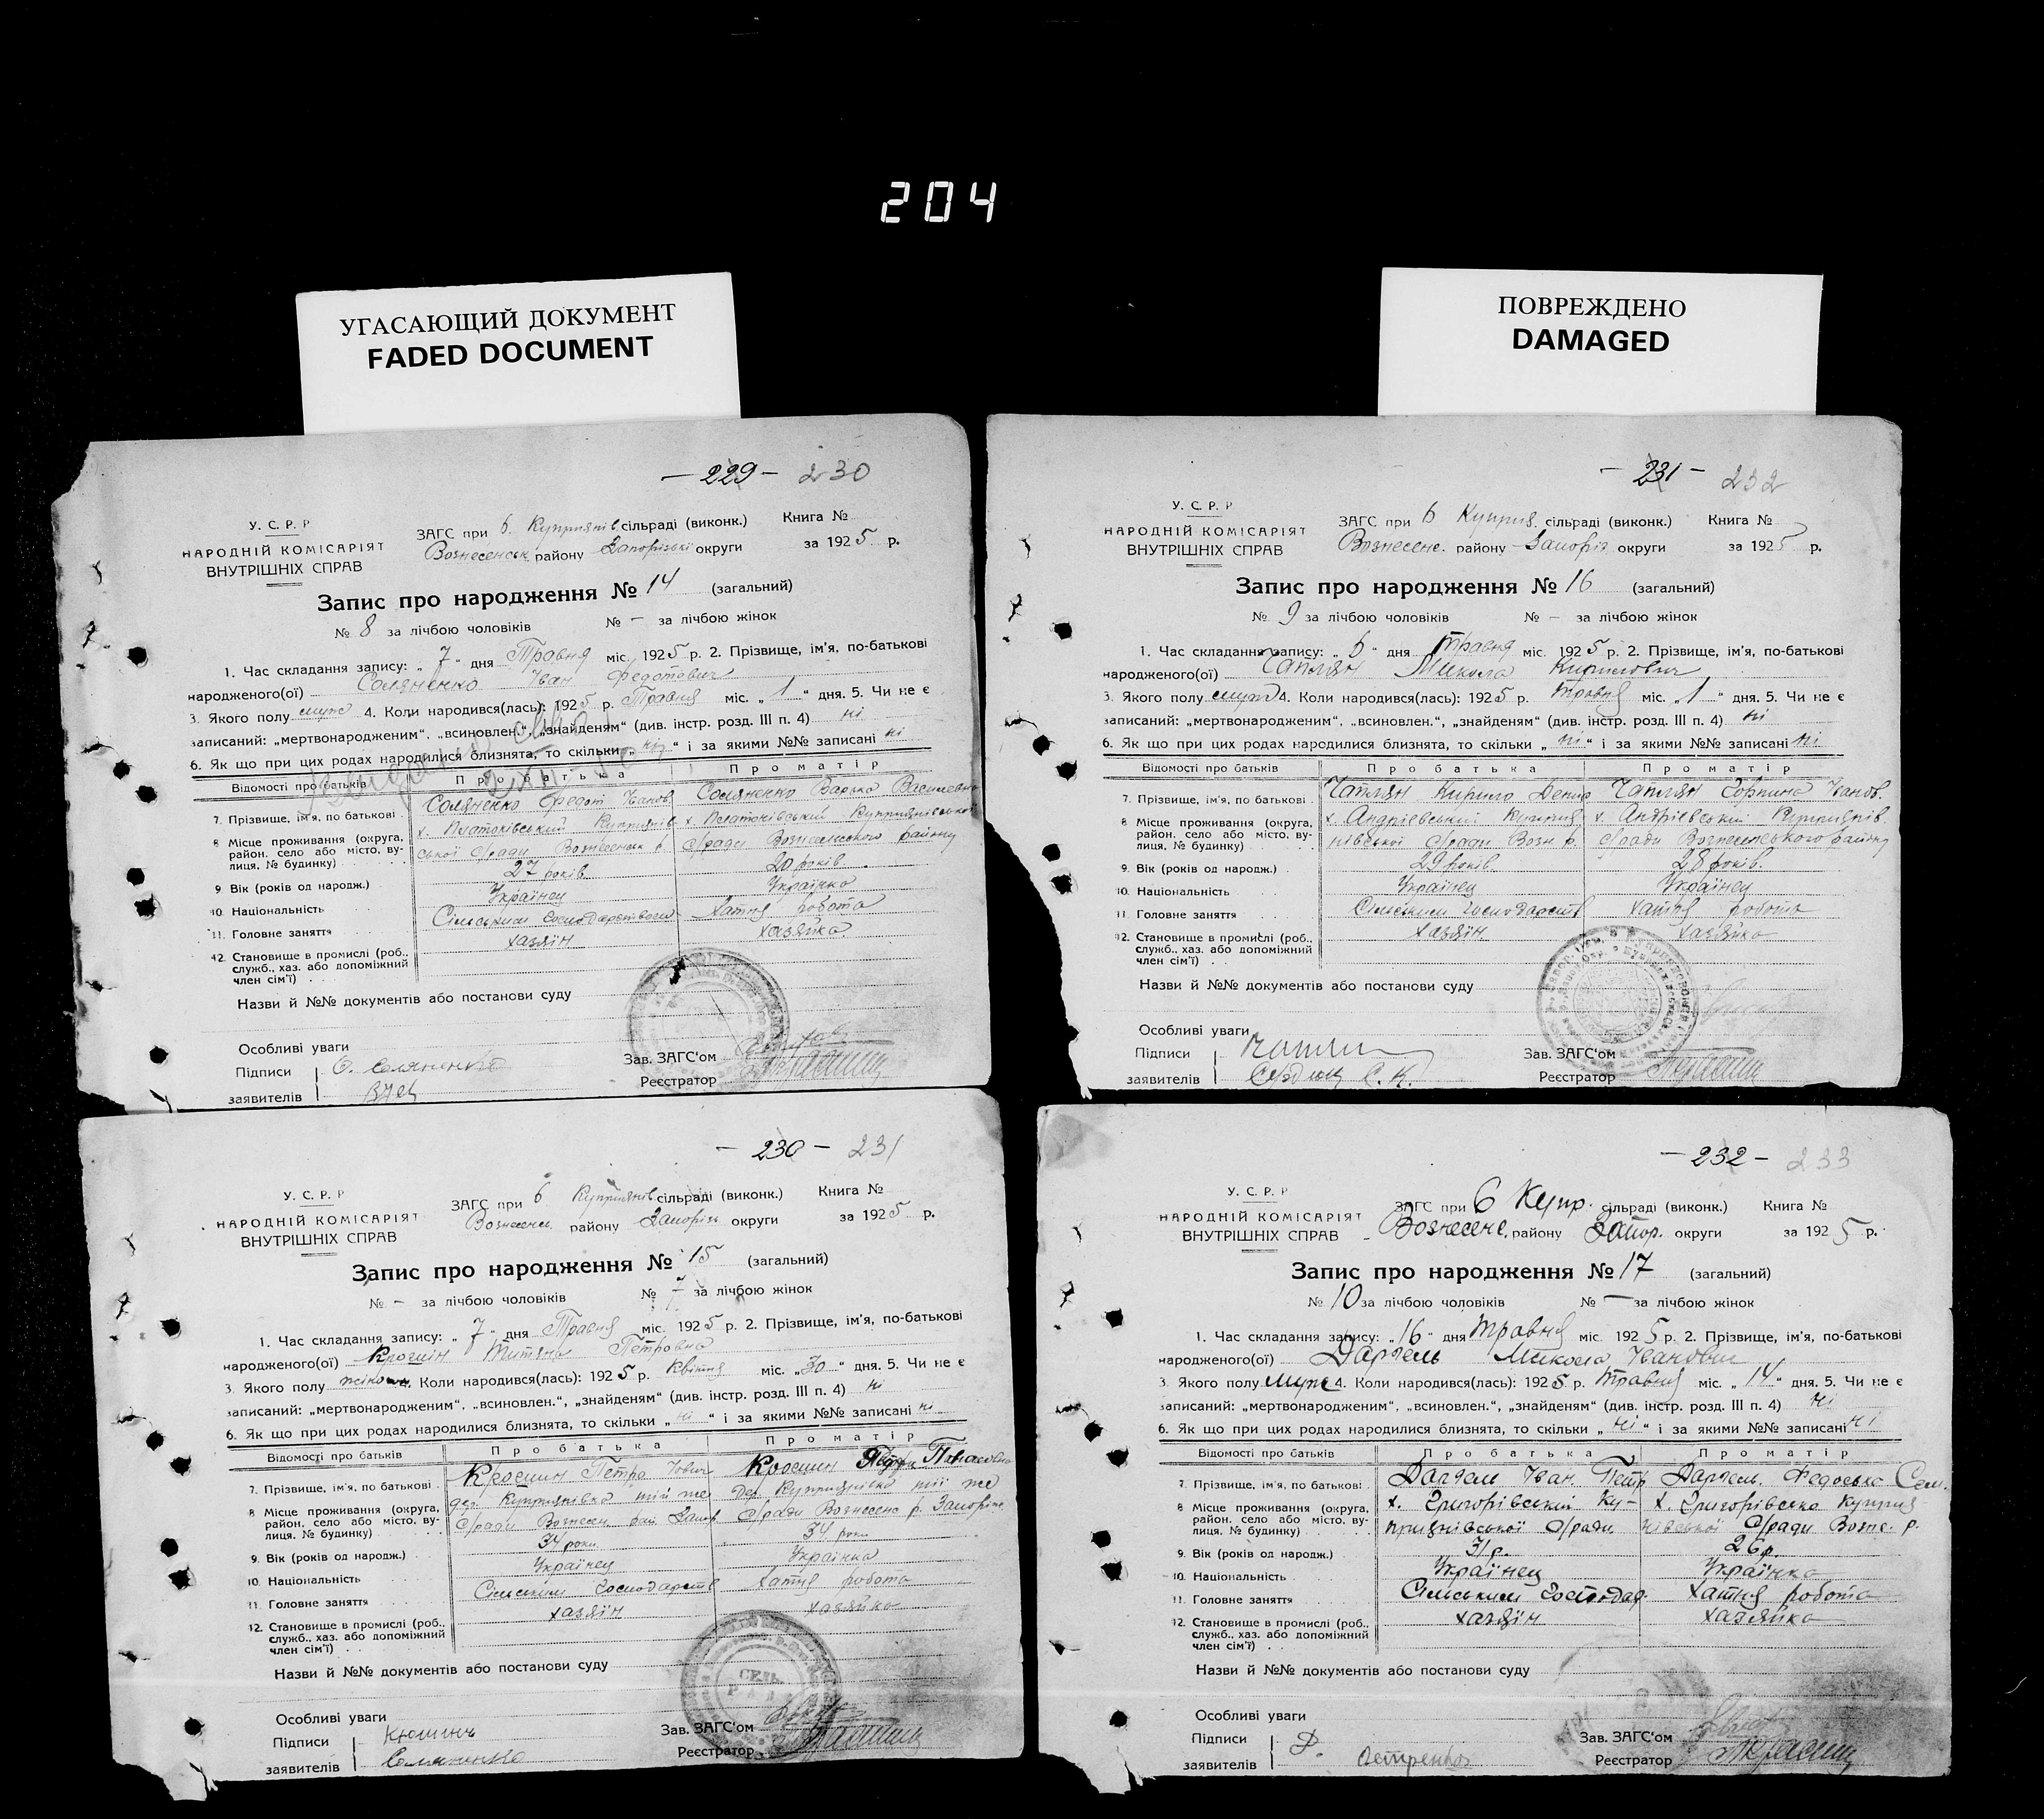 204
УГАСАЮЩИЙ ДОКУМЕНТ
FADED DOCUMENT
ПОВРЕЖДЕНО
DAMAGED
— 229 — 230
У. С. Р. Р
НАРОДНІЙ КОМІСАРІЯТ
ВНУТРІШНІХ СПРАВ
ЗАГС при б. Куприянів. сільраді (виконк.) Книга №
Вознесенськ району Запорізької округи за 1925 р.
Запис про народження № 14 (загальний)
№ 8 за лічбою чоловіків № – за лічбою жінок
1. Час складання запису: „ 7 “ дня Травня міс. 1925 р. 2. Прізвище, ім'я, по-батькові
народженого(ої) Соляненко Іван Федотович
3. Якого полу муж 4. Коли народився(лась): 1925 р. Травня міс. „ 1 “ дня. 5. Чи не є
записаний: „мертвонародженим“, „всиновлен.“, „знайденям“ (див. інстр. розд. III п. 4) ні
6. Як що при цих родах народилися близнята, то скільки „ ні “ і за якими №№ записані ні
Відомості про батьків Про батька Про матір
7. Прізвище, ім'я, по батькові Соляненко Федот Іванов Соляненко Варька Василевна
8 Місце проживання (округа, район, село або місто, вулиця, № будинку) х. Платонівський Куприянівської с/ради Вознесенськ р. х. Платонівський Куприянівської с/ради Вознесенського району
9. Вік (років од народж.) 27 років 20 років
10. Національність Українец Українка
11. Головне заняття Сільським господарством Хатня робота
12. Становище в промислі (роб., служб., хаз. або допоміжний член сім'ї) хазяїн хазяйка
Назви й №№ документів або постанови суду
Особливі уваги
Підписи заявителів Ф. Соляненко
Зав. ЗАГС'ом
Реєстратор
— 231 — 232
У. С. Р. Р
НАРОДНІЙ КОМІСАРІЯТ
ВНУТРІШНІХ СПРАВ
ЗАГС при б Куприя. сільраді (виконк.) Книга №
Вознесенс. району Запоріз округи за 1925 р.
Запис про народження № 16 (загальний)
№ 9 за лічбою чоловіків № – за лічбою жінок
1. Час складання запису: „ 6 “ дня Травня міс. 1925 р. 2. Прізвище, ім'я, по-батькові
народженого(ої) Чаплян Микола Кирилович
3. Якого полу муж 4. Коли народився(лась): 1925 р. Травня міс. „ 1 “ дня. 5. Чи не є
записаний: „мертвонародженим“, „всиновлен.“, „знайденям“ (див. інстр. розд. III п. 4) ні
6. Як що при цих родах народилися близнята, то скільки „ ні “ і за якими №№ записані ні
Відомості про батьків Про батька Про матір
7. Прізвище, ім'я, по батькові Чаплян Кирило Чаплян Іванов.
8 Місце проживання (округа, район, село або місто, вулиця, № будинку) х. Андрієвський Куприянівської с/ради Возн р. х. Андрієвський Куприянів. с/ради Вознесенського району
9. Вік (років од народж.) 29 років 28 років.
10. Національність Українец Українец
11. Головне заняття Сільським господарств хатня робота
12. Становище в промислі (роб., служб., хаз. або допоміжний член сім'ї) хазяїн хазяйка
Назви й №№ документів або постанови суду
Особливі уваги
Підписи заявителів
Зав. ЗАГС'ом
Реєстратор
— 230 — 231
У. С. Р. Р
НАРОДНІЙ КОМІСАРІЯТ
ВНУТРІШНІХ СПРАВ
ЗАГС при б Куприянов. сільраді (виконк.) Книга №
Вознесенс. району Запоріз округи за 1925 р.
Запис про народження № 15 (загальний)
№ – за лічбою чоловіків № 7 за лічбою жінок
1. Час складання запису: „ 7 “ дня Травня міс. 1925 р. 2. Прізвище, ім'я, по-батькові
народженого(ої) Титяна Петровна
3. Якого полу жіноч 4. Коли народився(лась): 1925 р. Квітня міс. „ 30 “ дня. 5. Чи не є
записаний: „мертвонародженим“, „всиновлен.“, „знайденям“ (див. інстр. розд. III п. 4) ні
6. Як що при цих родах народилися близнята, то скільки „ ні “ і за якими №№ записані ні
Відомості про батьків Про батька Про матір
7. Прізвище, ім'я, по батькові Петро Панасовна
8 Місце проживання (округа, район, село або місто, вулиця, № будинку) дер. Куприянівка тій же с/ради Вознесен. рай. Запор дер. Куприянівка тії же с/ради Вознесенс р. Запоріж.
9. Вік (років од народж.) 34 роки 34 роки
10. Національність Українец Українка
11. Головне заняття Сільським господарств хатня робота
12. Становище в промислі (роб., служб., хаз. або допоміжний член сім'ї) хазяїн хазяйка
Назви й №№ документів або постанови суду
Особливі уваги
Підписи заявителів Соляненко
СЕЛЬ.
Зав. ЗАГС'ом
Реєстратор
— 232 — 233
У. С. Р. Р
НАРОДНІЙ КОМІСАРІЯТ
ВНУТРІШНІХ СПРАВ
ЗАГС при б Купр. сільраді (виконк.) Книга №
Вознесенс. району Запор. округи за 1925 р.
Запис про народження № 17 (загальний)
№ 10 за лічбою чоловіків № — за лічбою жінок
1. Час складання запису: „ 16 “ дня Травня міс 1925 р. 2. Прізвище, ім'я, по-батькові
народженого(ої) Микола Іванович
3. Якого полу муж 4. Коли народився(лась): 1925 р. Травня міс. „ 14 “ дня. 5. Чи не є
записаний: „мертвонародженим“, „всиновлен.“, „знайденям“ (див. інстр. розд. III п. 4) ні
6. Як що при цих родах народилися близнята, то скільки „ ні “ і за якими №№ записані ні
Відомості про батьків Про батька Про матір
7. Прізвище, ім'я, по батькові Іван Петр Федоська Сем.
8 Місце проживання (округа, район, село або місто, вулиця, № будинку) х. Григорівський Куприянівської с/ради х. Григорівска Куприянівської с/ради Вознес. р.
9. Вік (років од народж.) 31 р. 26 р.
10. Національність Українец Українка
11. Головне заняття Сільським господар. хатня робота
12. Становище в промислі (роб., служб., хаз. або допоміжний член сім'ї) хазяїн хазяйка
Назви й №№ документів або постанови суду
Особливі уваги
Підписи заявителів Петренко
Зав. ЗАГС'ом
Реєстратор